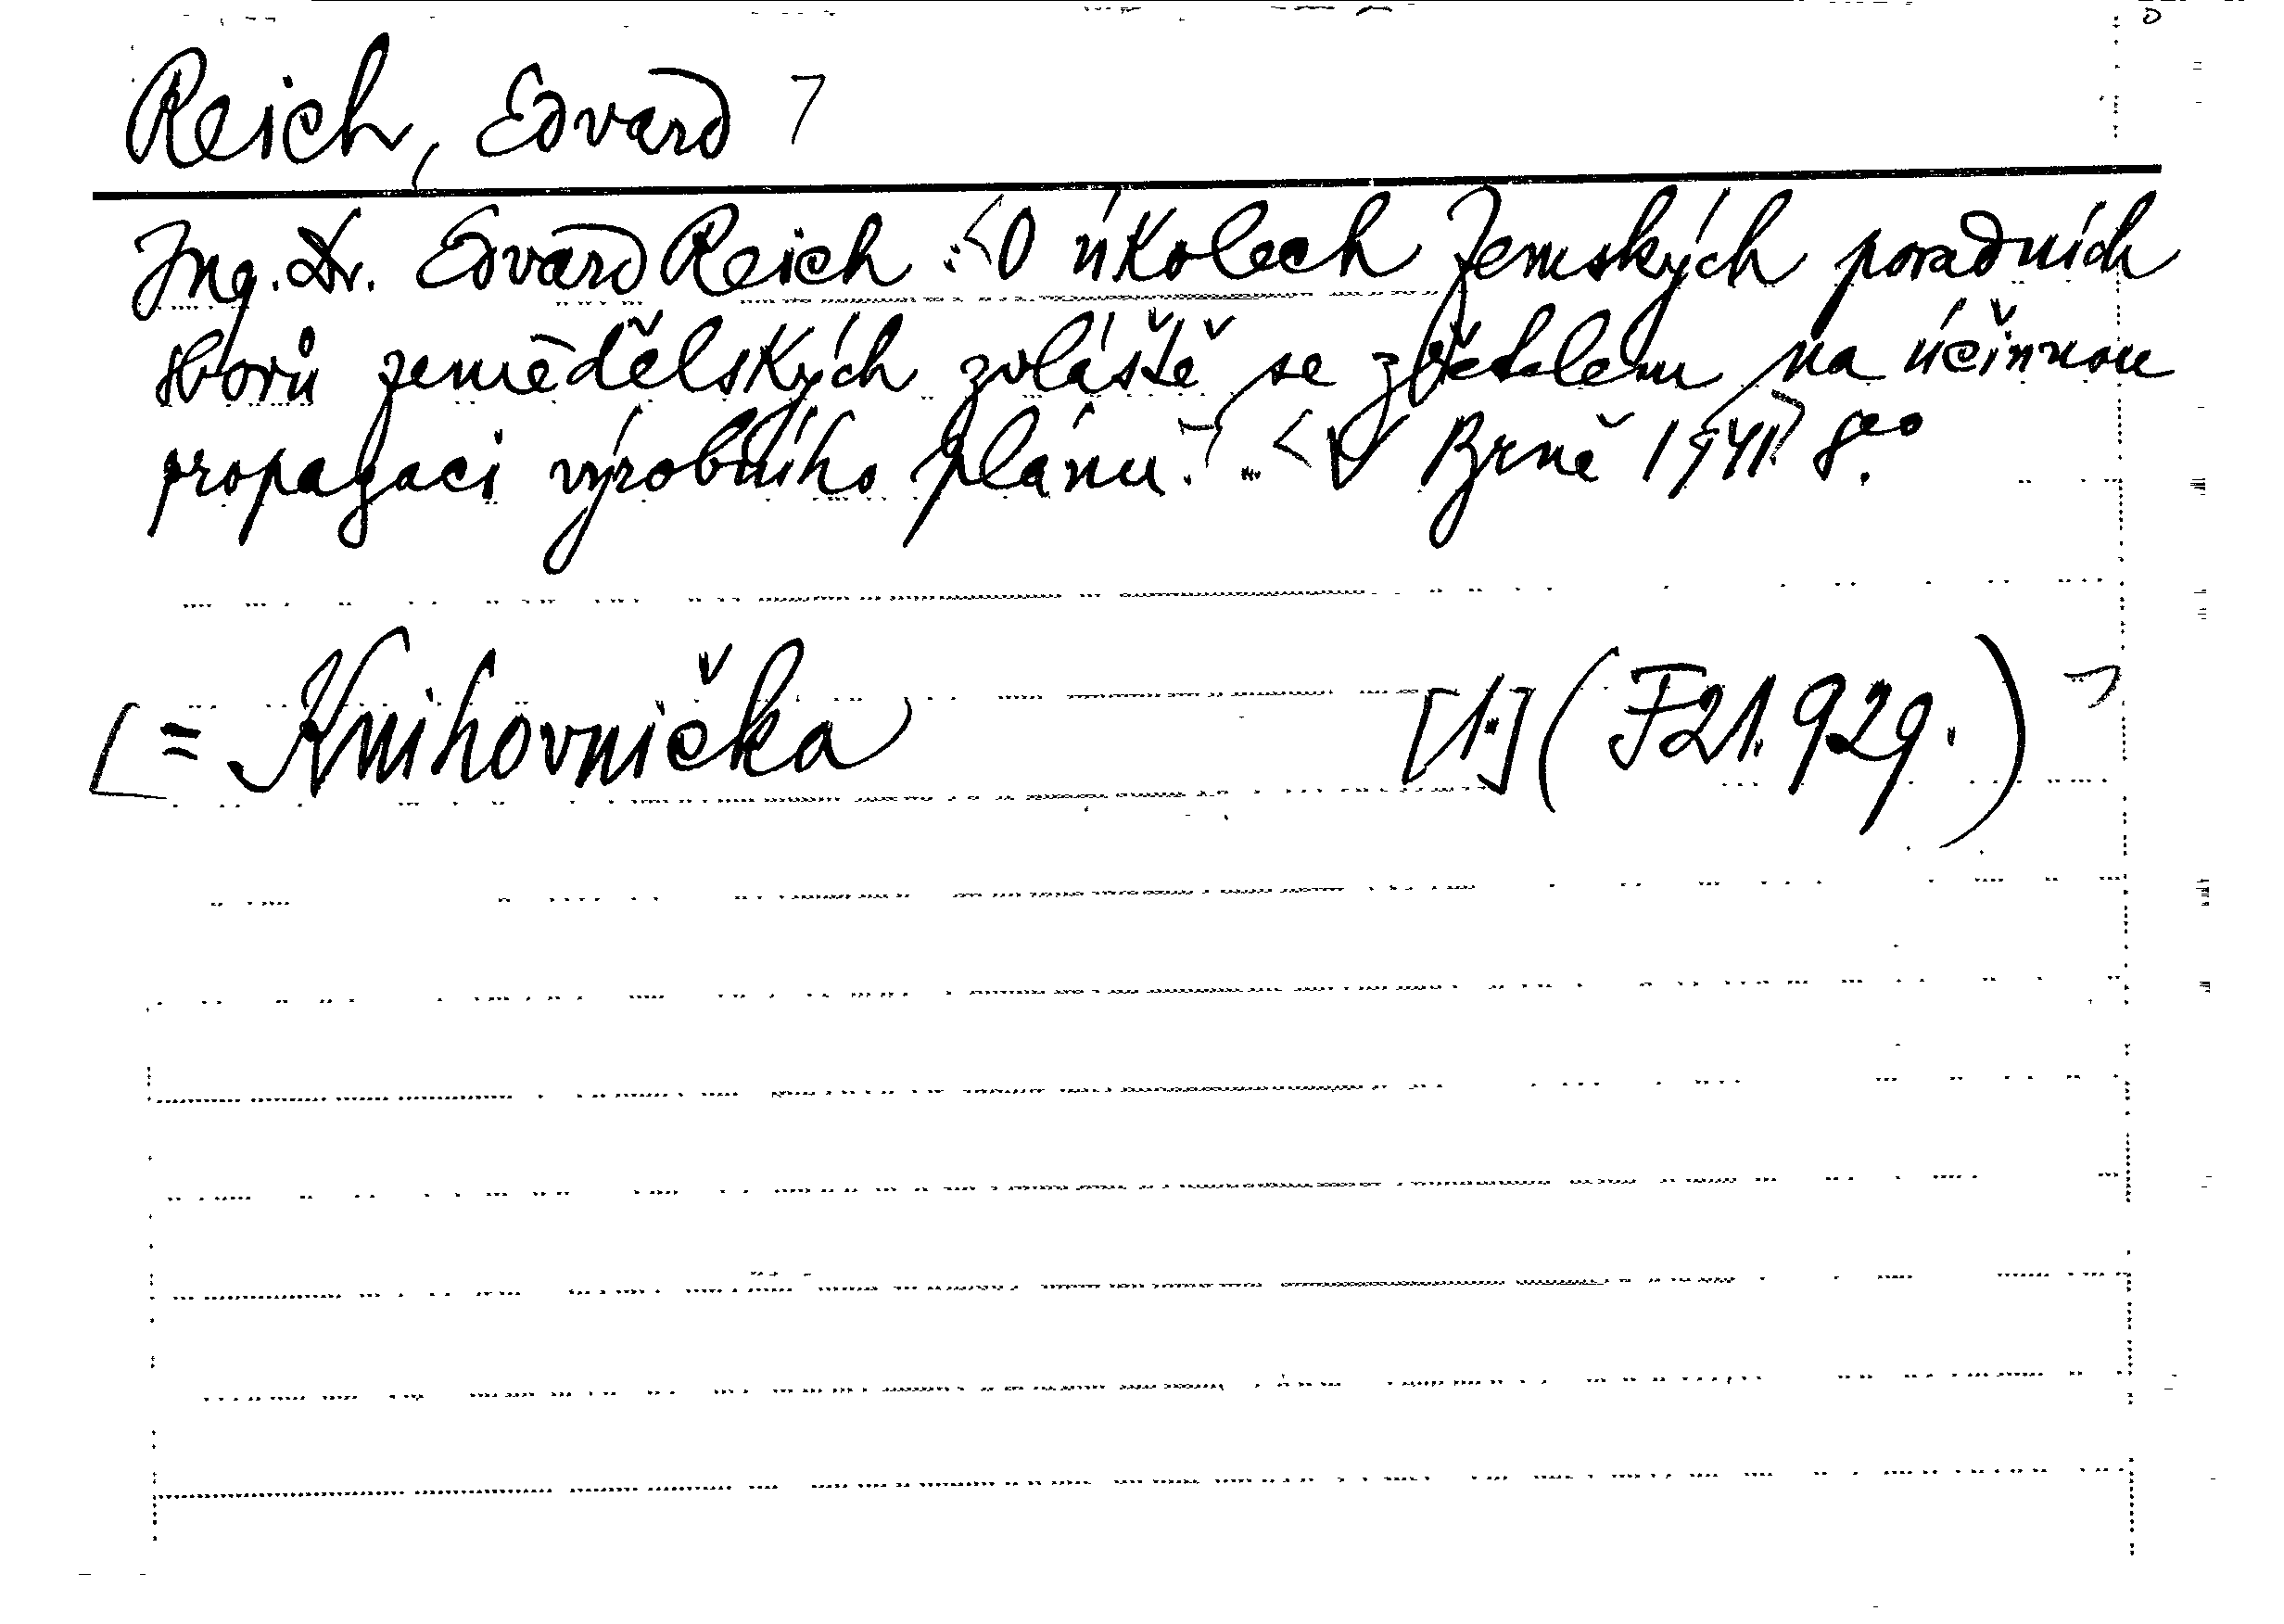 Reich, Edvard
Ing. Dr. Edvard Reich : O úkolech Zemských poradních
sborů zemědělských zvláště se zřetelem na účinnou
propagaci výrobního plánu. .. V Brně 1941. 8°°
= Knihovnička [1.] (F21.929.)